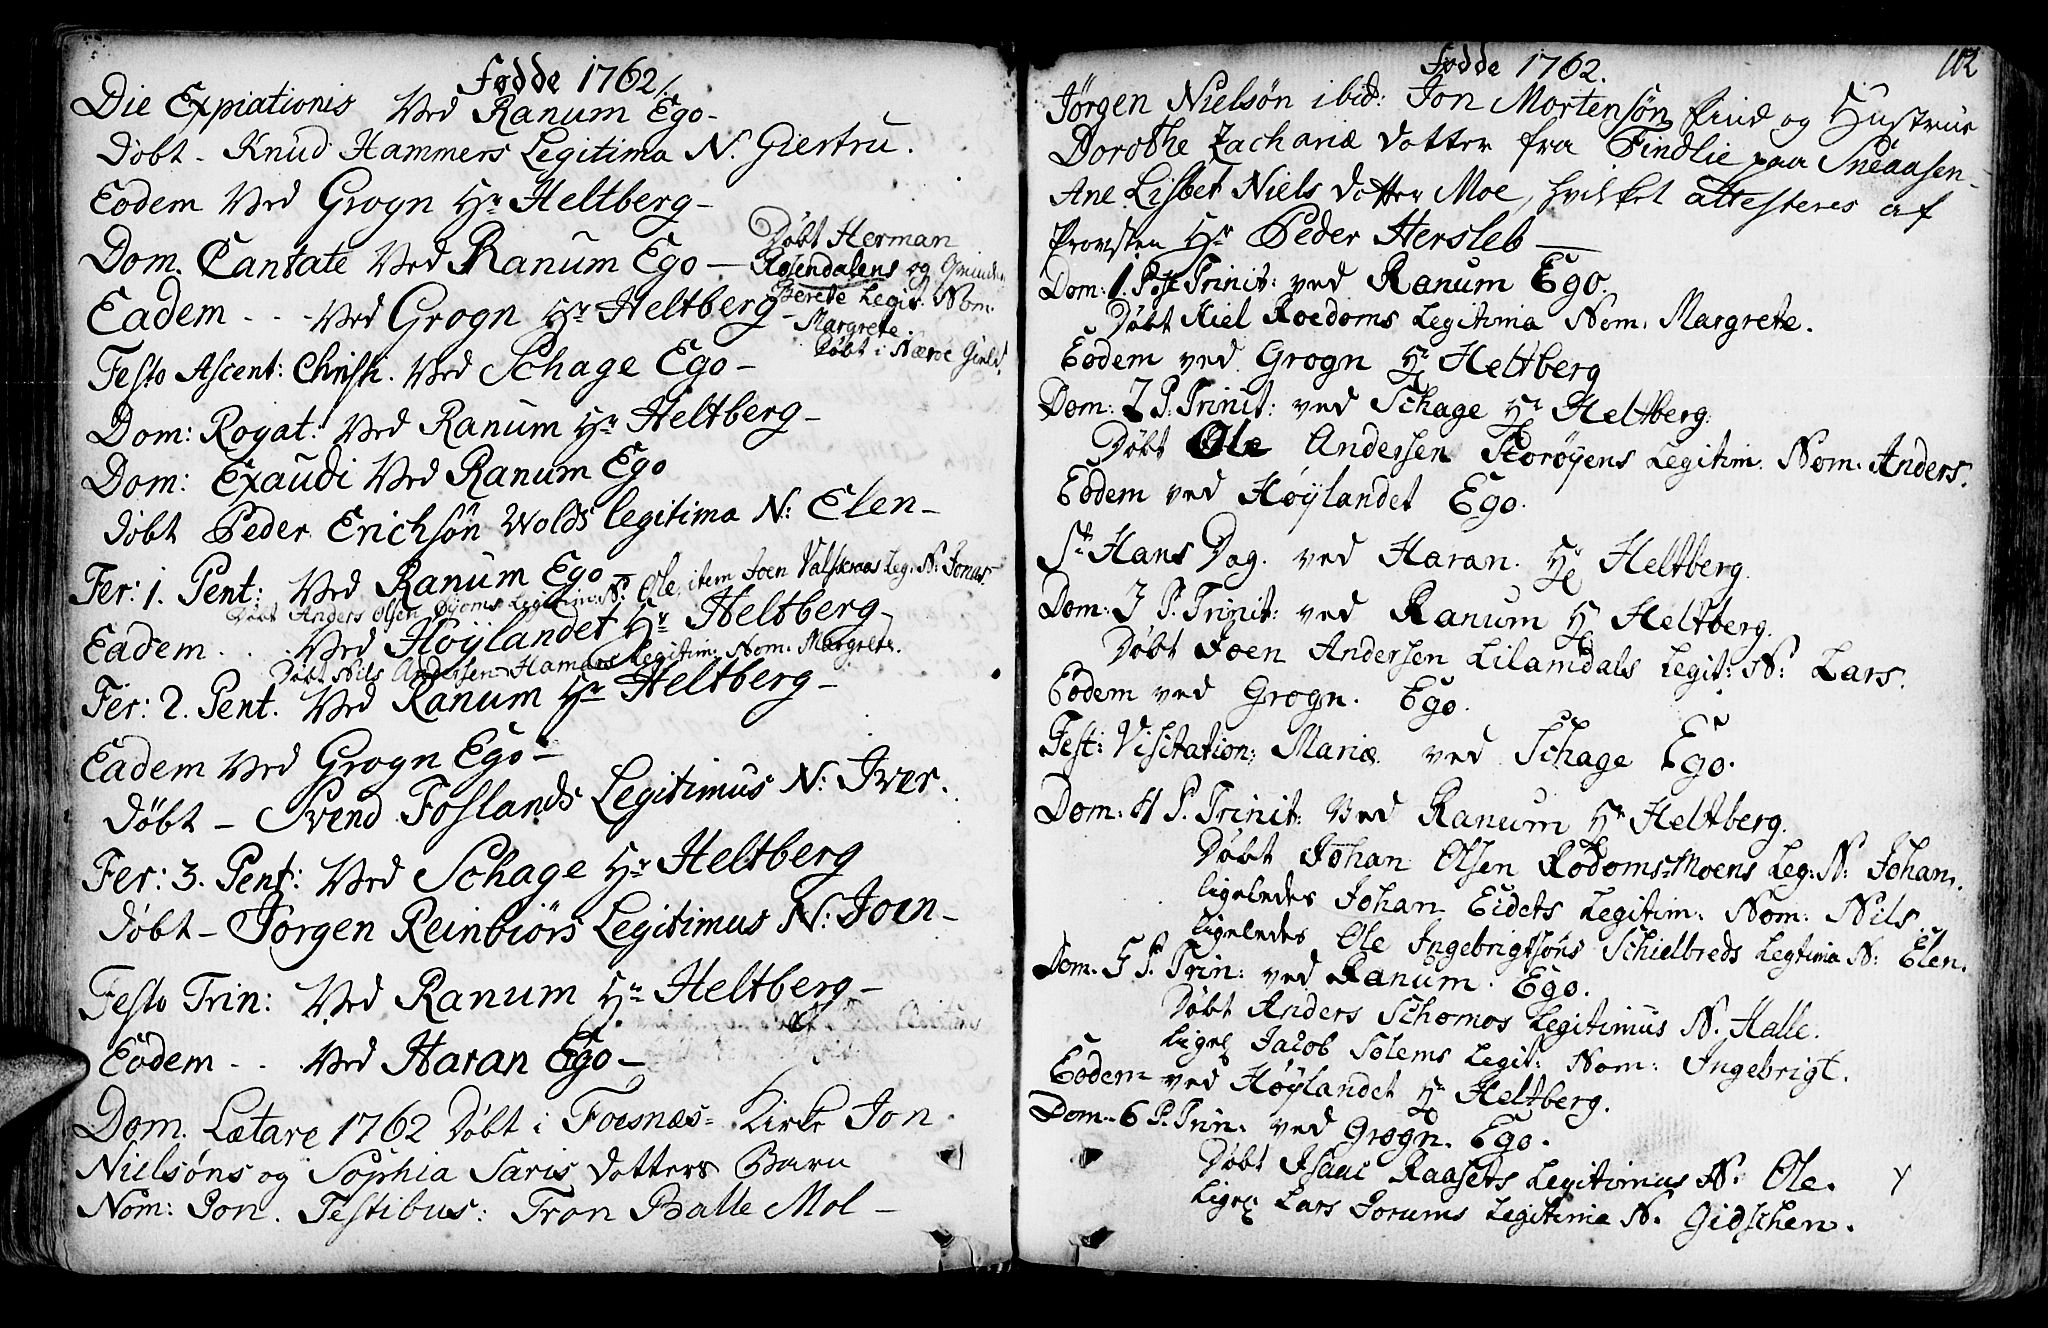 Fødde 1762.
Die Expiationis Ved Ranum Ego-
Døbt - Knud Hammers Legitima N. Giertru.
Eodem Ved Grogn Hr Heltberg-
Dom. Cantate Ved Ranum Ego-
Døbt Herman
Rosendalens og
Berete Legit. Nom.
Margrete.
Døbt i Nærøe Gield.
Eadem . . - Ved Grogn Hr Heltberg-
Festo Ascent: Christi. Ved Schage Ego-
Dom: Rogat: Ved Ranum Hr Heltberg-
Dom: Exaudi Ved Ranum Ego
Døbt Peder Erichsøn Wolds legitima N: Elen-
Fer: 1. Pent: Ved Ranum Ego-
Døbt Anders Olsen Øyoms Legitim: N: Ole, item Joen Leg: N: Jonas
Eadem . . . Ved Høylandet Hr Heltberg-
Døbt Nils Andersen Hamans Legitim: Nom: Margrete.
Fer: 2. Pent. Ved Ranum Hr Heltberg-
Eadem Ved Grogn Ego-
Døbt - Svend Foslands Legitimus N: Iver.
Fer: 3. Pent: Ved Schage Hr Heltberg
Døbt - Jørgen Reinbiørs Legitimus N: Joen-
Festo Trin: Ved Ranum Hr Heltberg-
Eodem . . . Ved Haran Ego-
Dom. Lætare 1762 Døbt i Foesnæs= Kirke Jon
Nielsøns og Sophia Saris Dotters Barn
Nom: Jon. Testibus: Tron Balle Mol-
112
Fødde 1762.
Jørgen Nielsøn ibid: Jon Mortensøn Find og Hustrue
Dorothe Zachariæ Dotter fra Findlie paa Sneaasen-
Ane Lisbet Niels Dotter Moe, hvilket attesteres af
Provsten Hr Peder Hersleb-
Dom: 1. Post Trinit: ved Ranum Ego.
Døbt Kiel Roedoms Legitima Nom: Margrete.
Eodem ved Grogn Hr Heltberg
Dom: 2 P. Trinit: ved Schage Hr Heltberg.
Døbt Ole Andersen Storøyens Legitim. Nom: Anders.
Eodem ved Høylandet Ego.
St Hans Dag. ved Haran. Hr Heltberg.
Dom: 3 P. Trinit: ved Ranum Hr Heltberg.
Døbt Joen Andersen Lilamdals Legit: N: Lars.
Eodem ved Grogn. Ego.
Fest: Visitation: Mariæ ved Schage Ego.
Dom: 4 P. Trinit: Ved Ranum Hr Heltberg.
Døbt Johan Olsen Rodoms=Moens Leg: N: Johan.
ligeledes Johan Eidets Legitim: Nom: Nils.
ligeledes Ole Ingebrigtsøns Schielbreds Legtima N: Elen.
Dom. 5 P. Trin: ved Ranum. Ego.
Døbt Anders Schomos Legitimus N. Halle.
Ligel Jacob Solems Legit: Nom: Ingebrigt.
Eodem ved Høylandet Hr Heltberg.
Dom. 6 P. Trin. ved Grogn. Ego.
Døbt Isaac Raasets Legitimus N. Ole.
Ligel Lars Forums Legitima N. Gidschen.